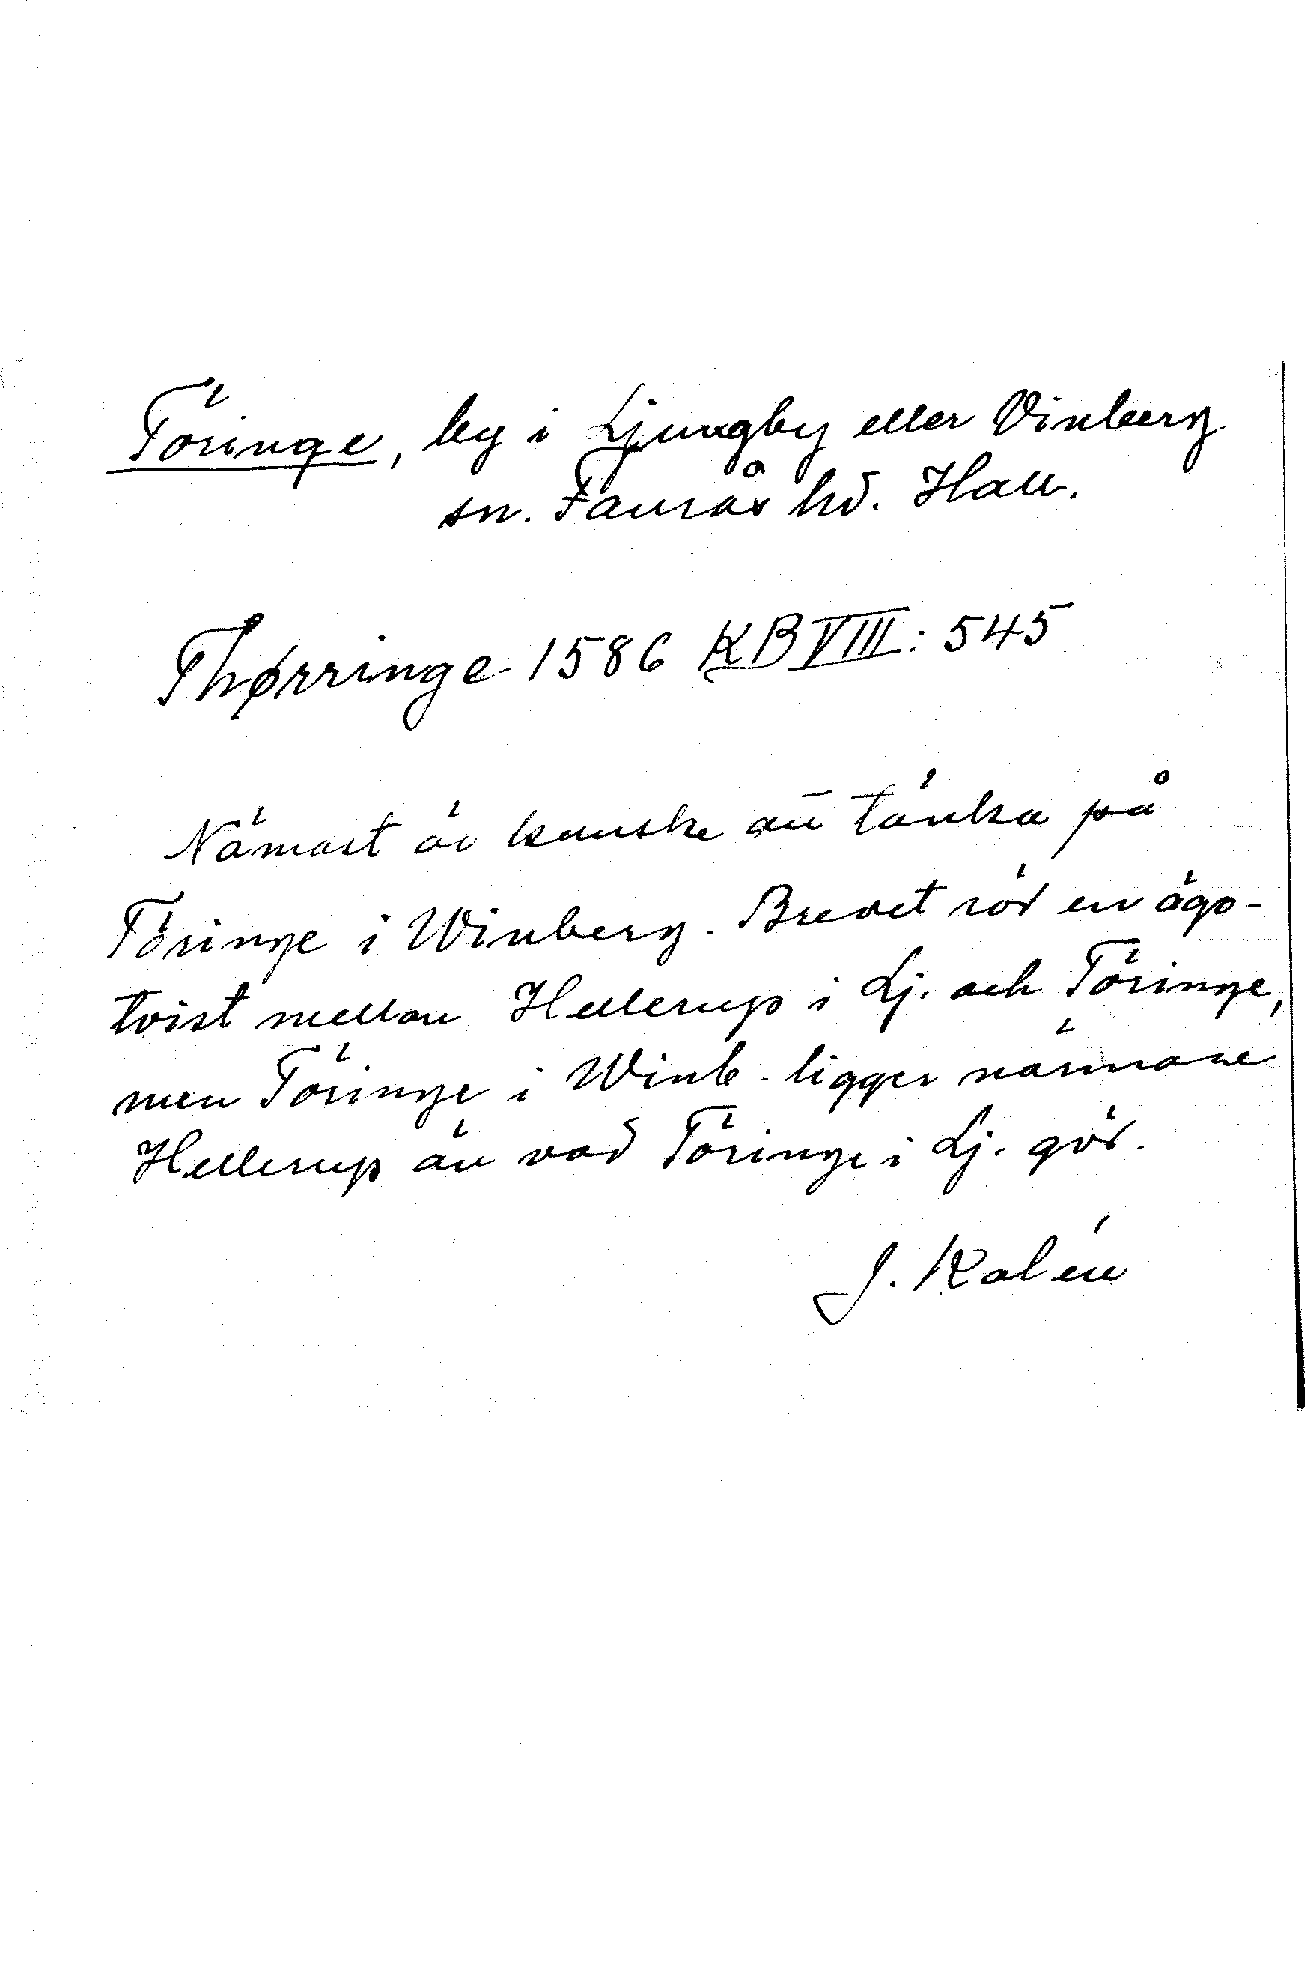 Töringe, by i Ljungby eller Vinberg
sn. Faurås hd. Hall.
Thørringe 1586 KB VIII: 545
Närmast är kanske att tänka på
Töringe i Winberg. Brevet rör en ägo-
tvist mellan Hellerup i Lj. och Töringe,
men Töringe i Winb. ligger närmare
Hellerup än vad Töringe i Lj. gör.
J. Kalén